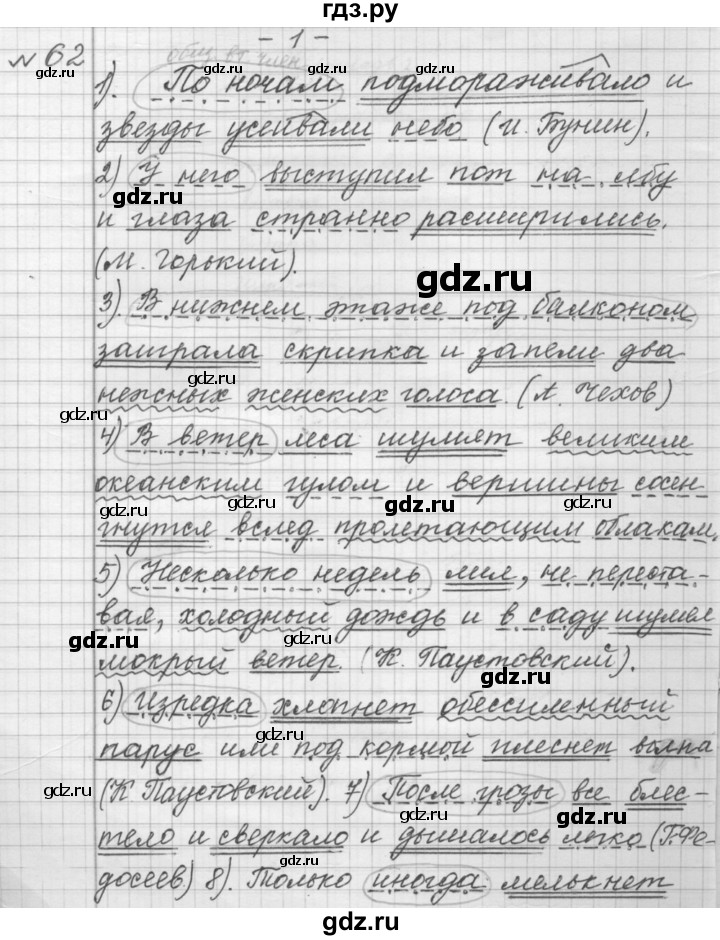 гдз.ру
- 1 -
№ 62
общ. вт. член
1). По ночам подмораживало и
звезды усеивали небо (И. Бунин).
2) У него выступил пот на лбу
и глаза странно расширились.
(М. Горький).
3). В нижнем этаже под балконом
заиграла скрипка и запели два
нежных женских голоса. (А. Чехов)
4) В ветер леса шумят великим
океанским гулом и вершины сосен
гнутся вслед пролетающим облакам.
5) Несколько недель лил, не переста-
вая, холодный дождь и в саду шумел
мокрый ветер. (К. Паустовский).
6) Изредка хлопнет обессиленный
парус или под кормой плеснет волна
(К Паустовский). 7) После грозы все блес-
тело и сверкало и дышалось легко (Г. Фе-
досеев) 8). Только иногда мелькнет
gdz.ru